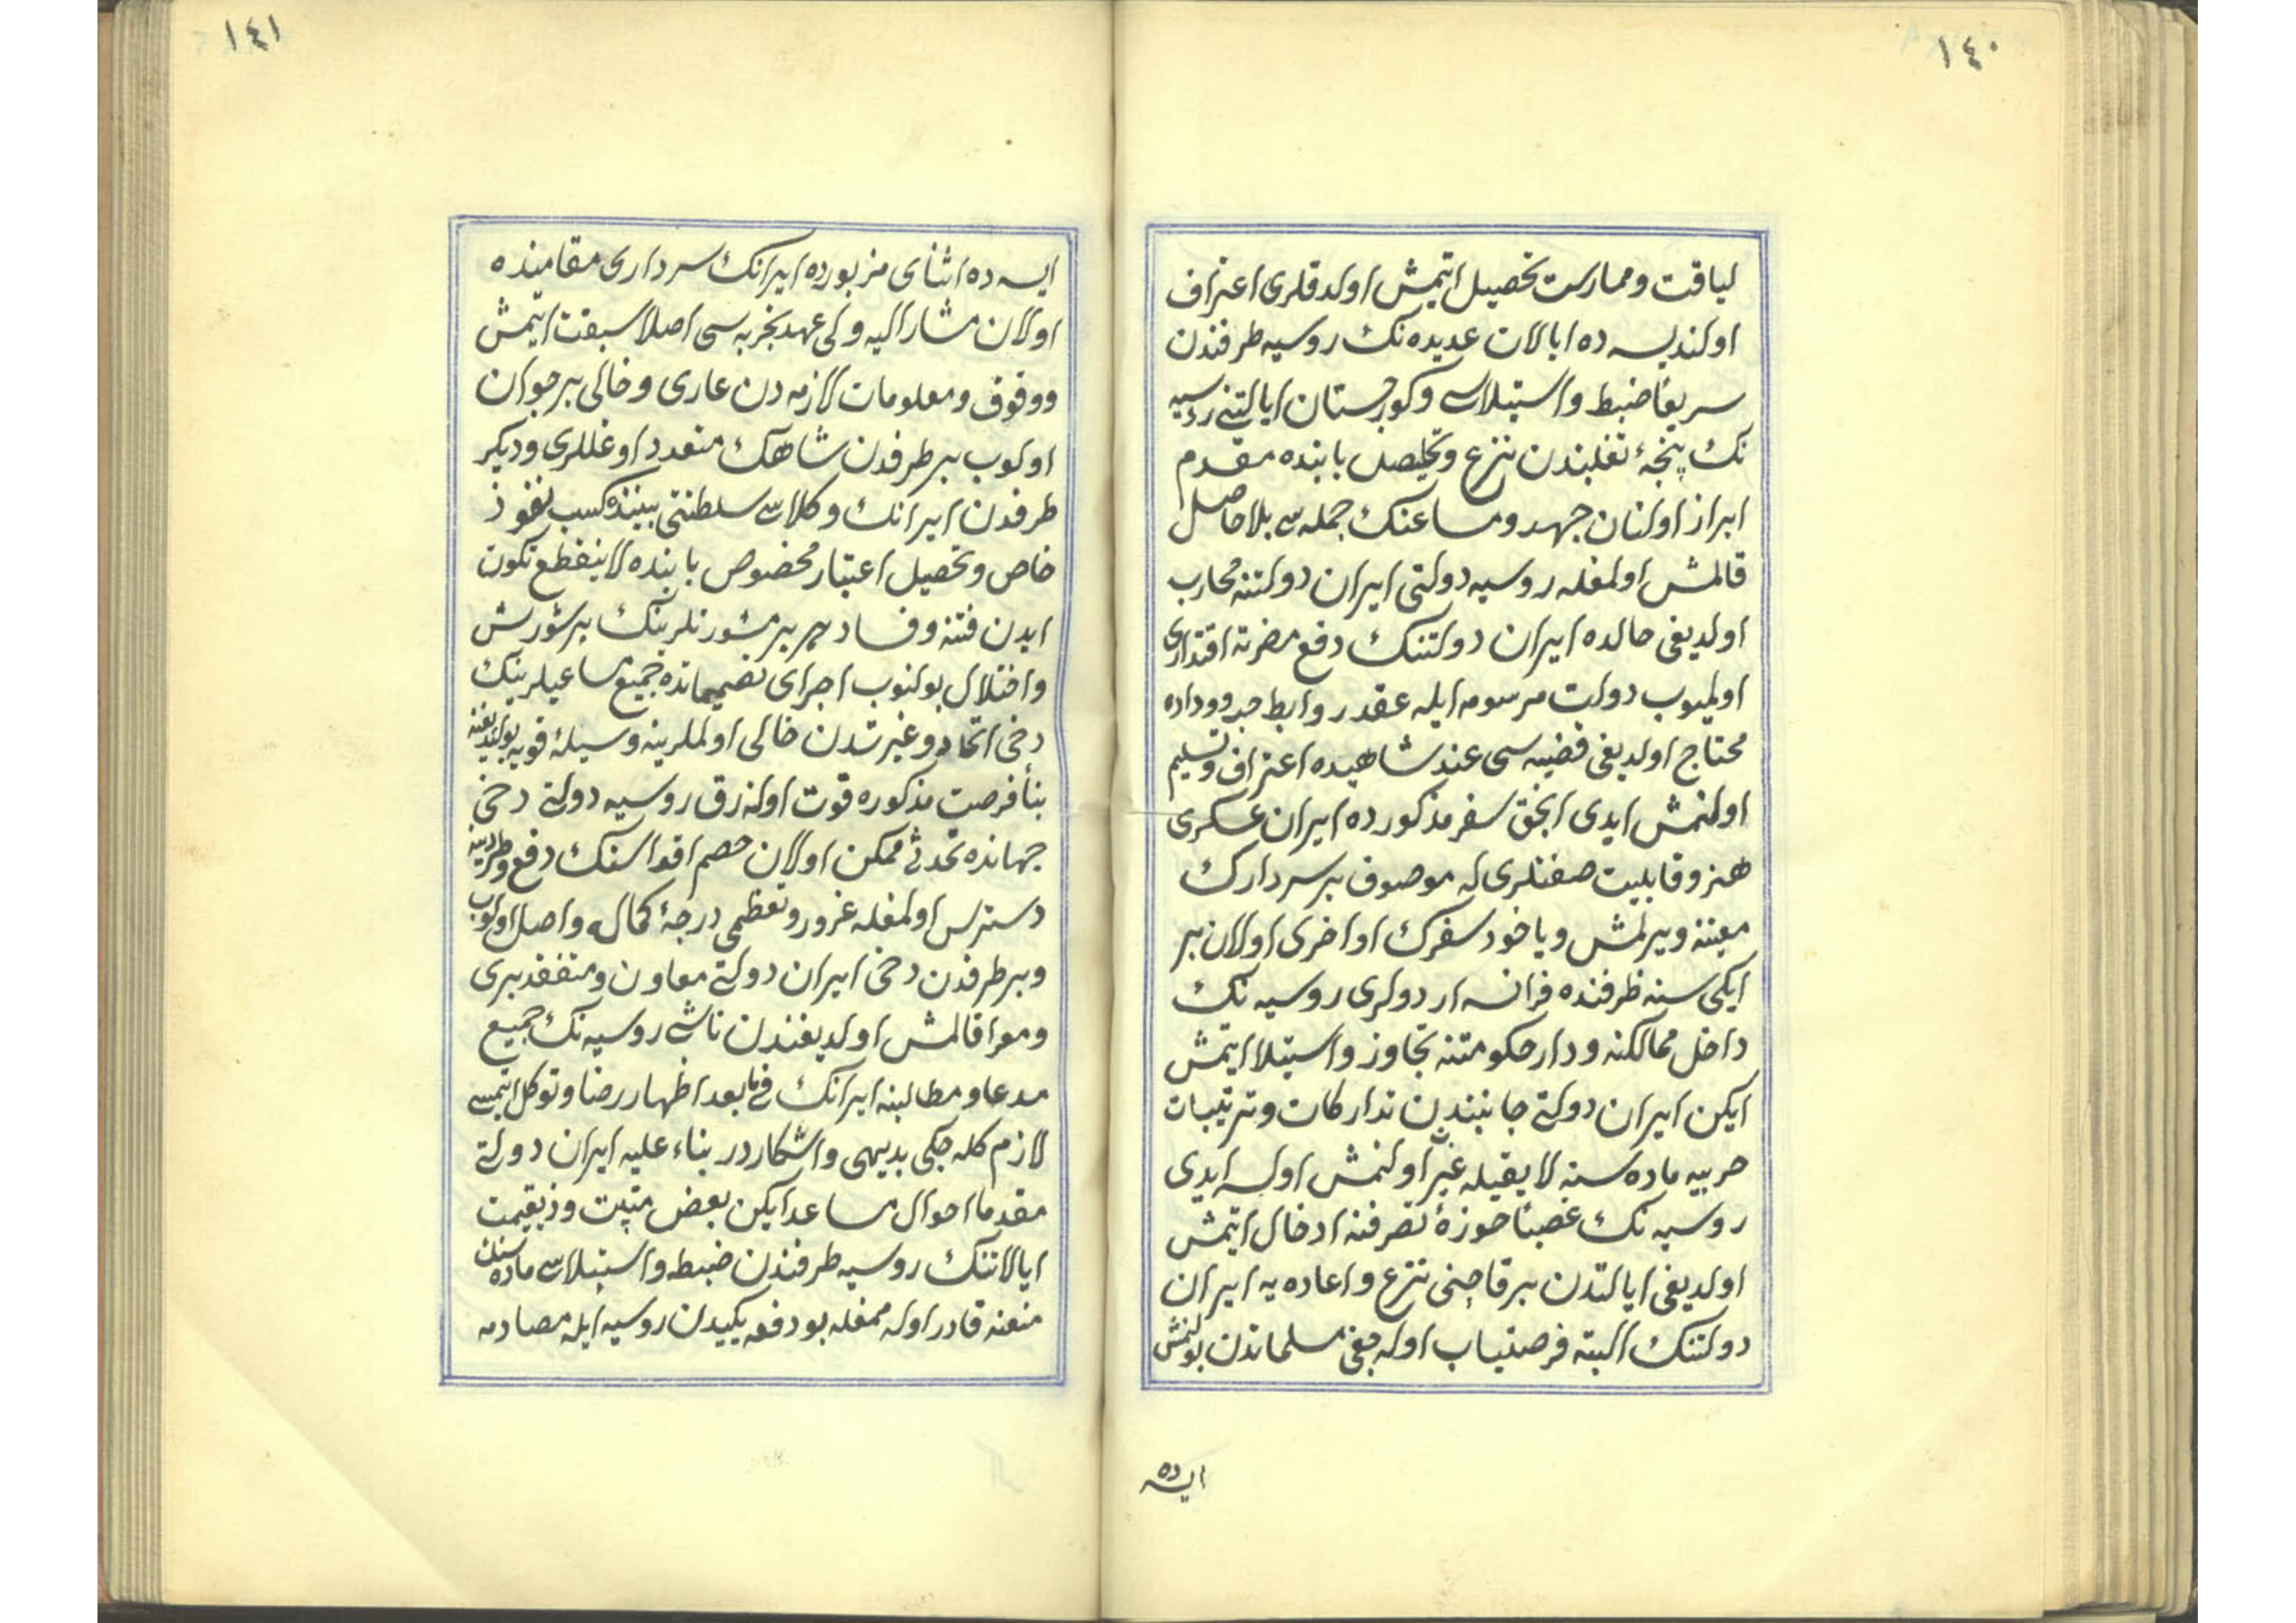 ١٤٠
لیاقت وممارست تحصیل ایتمش اولدقلری اعتراف
اولندیسه ده ایالات عدیده نک روسیه طرفندن
سریعًا ضبط واستیلاسی وکورجستان ایالتنی روسیه
نک پنجهٔ تغلبندن نزع وتخلیصل بابنده مقدم
ابراز اولنان جهد ومساعینک جمله سی بلا حاصل
قالمش اولمغله روسیه دولتی ایران دولتنه محارب
اولدیغی حالده ایران دولتنک دفع مضرته اقتداری
اولمیوب دولت مرسومه ایله عقد روابط حب ووداده
محتاج اولدیغی قضیه سی عند شاهیده اعتراف وتسلیم
اولنمش ایدی انجق سفر مذکورده ایران عسکری
هنر وقابلیت صفتلری له موصوف بر سردارک
معیتنه ویرلمش ویاخود سفرک اواخری اولان بر
ایکی سنه ظرفنده فرانسه اردولری روسیه نک
داخل ممالکنه ودار حکومتنه تجاوز واستیلا ایتمش
ایکن ایران دولتی جانبندن تدارکات وترتیبات
حربیه ماده سنه لایقیله غیرت اولنمش اولسه ایدی
روسیه نک غصبًا حوزهٔ تصرفنه ادخال ایتمش
اولدیغی ایالتدن بر قاچنی نزع واعاده یه ایران
دولتنک البته فرصتیاب اوله جغی مسلماتدن بولنمش
ایسه ده
١٤١
ایسه ده اثنای مزبورده ایرانک سرداری مقامنده
اولان مشار الیه ولی عهد تجربه سی اصلا سبقت ایتمش
ووقوف ومعلومات لازمه دن عاری وخالی بر جوان
اولوب بر طرفدن شاهک متعدد اوغللری ودیکر
طرفدن ایرانک وکلای سلطنتی بیننده کسب نفوذ
خاص وتحصیل اعتبار مخصوص بابنده لاینقطع تکون
ایدن فتنه وفساد هر بر مشورتلرینک بر شورش
واختلال بولنوب اجرای تصمیماتده جمیع مساعیلرینک
دخی اتحاد وغیرتدن خالی اولملرینه وسیلهٔ قویه بولندیغنه
بناءً فرصت مذکوره فوت اولنه رق روسیه دولتی دخی
جهانده تحدثی ممکن اولان خصم اقواسنک دفع وطردینه
دسترس اولمغله غرور وتعظمی درجهٔ کماله واصل اولوب
وبر طرفدن دخی ایران دولتی معاون ومتفقدن بری
ومعرا قالمش اولدیغندن ناشی روسیه نک جمیع
مدعا ومطالبنه ایرانک فیمابعد اظهار رضا وتوکل ایتمسی
لازم کله جکی بدیهی واشکاردر بناء علیه ایران دولتی
مقدما احوال مساعد ایکن بعض وذیقیمت
ایالاتنک روسیه طرفندن ضبط واستیلاسی ماده سندن
منعنه قادر اوله ممغله بو دفعه یکیدن روسیه ایله مصادمه